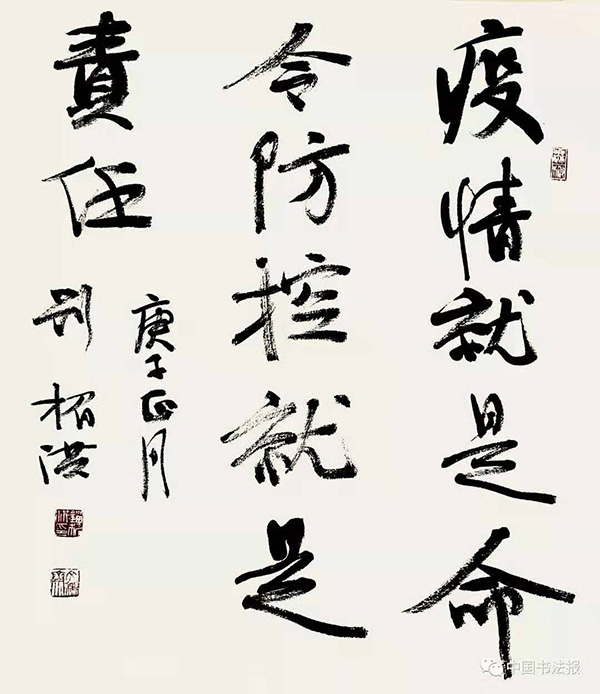 疫情就是命
令防控就是
責任
庚子正月
柏洪
中国书法报